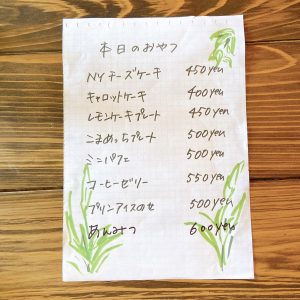 本日のおやつ
NYチーズケーキ 450yen
キャロットケーキ 400yen
レモンケーキプレート 450yen
こまめっちプレート 500yen
ミニパフェ 500yen
コーヒーゼリー 550yen
プリンアイスのせ 500yen
あんみつ 600yen